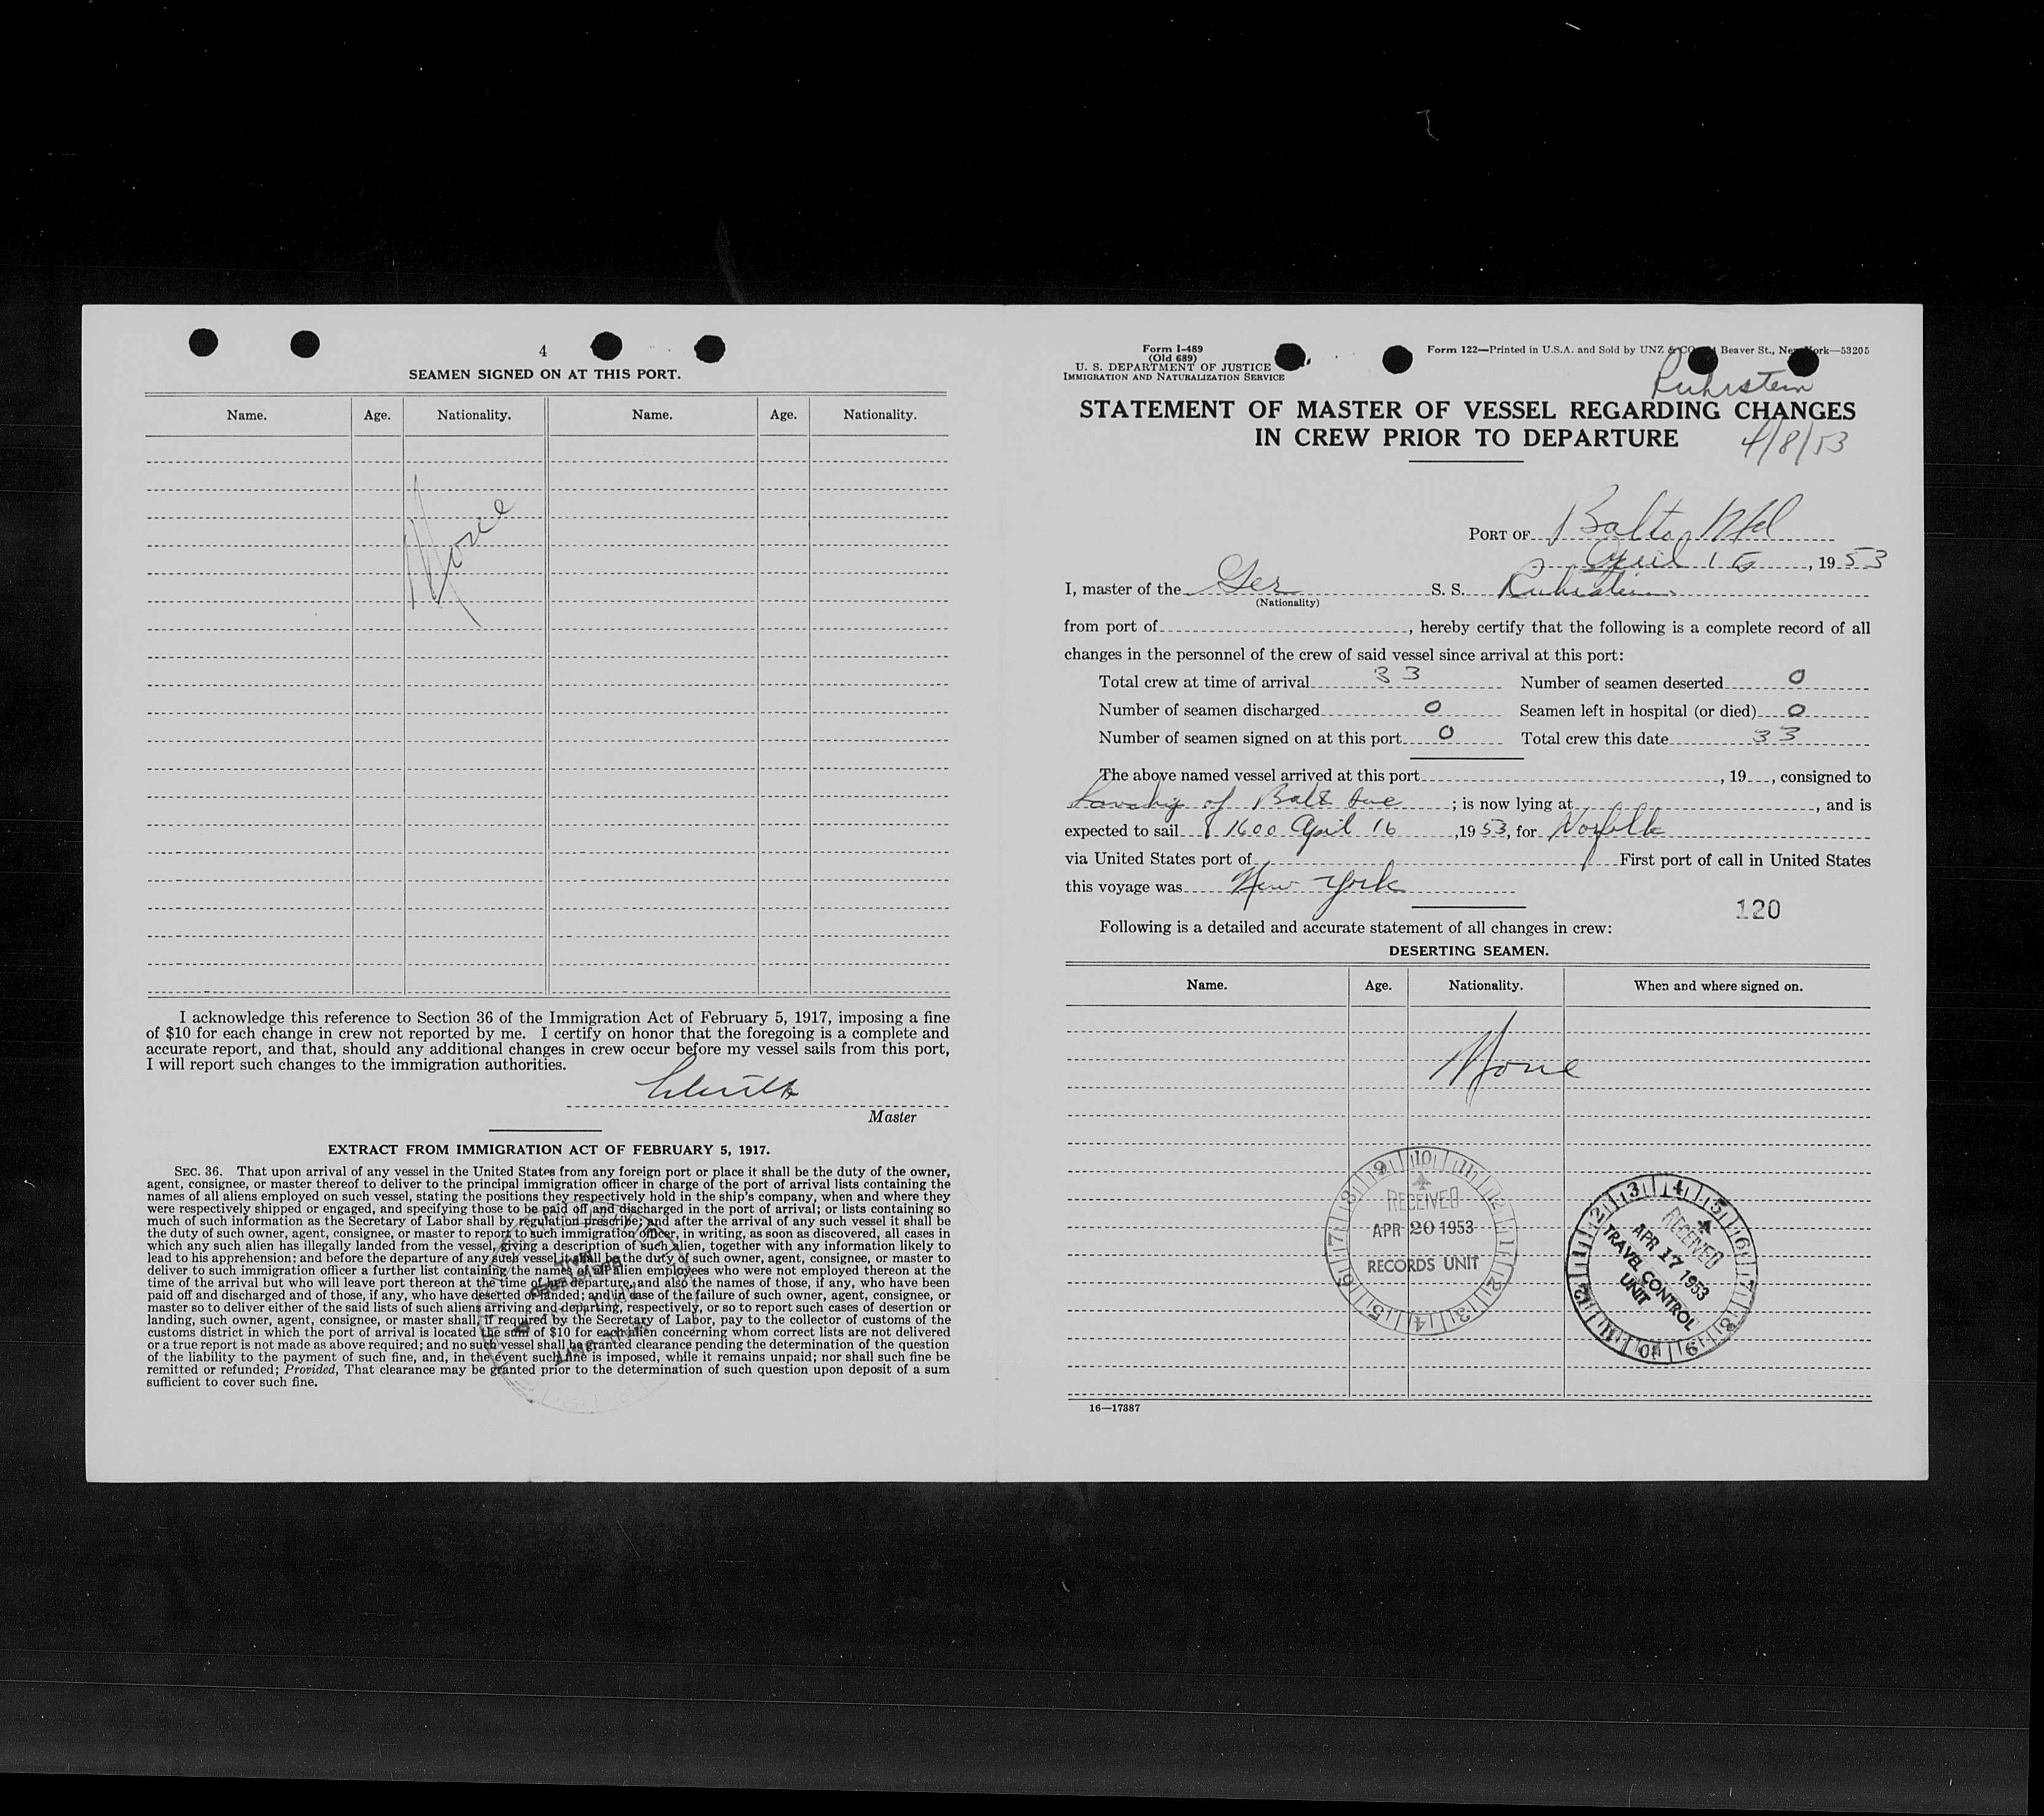 4
SEAMEN SIGNED ON AT THIS PORT.
Name. Age. Nationality. Name. Age. Nationality.
None
I acknowledge this reference to Section 36 of the Immigration Act of February 5, 1917, imposing a fine
of $10 for each change in crew not reported by me. I certify on honor that the foregoing is a complete and
accurate report, and that, should any additional changes in crew occur before my vessel sails from this port,
I will report such changes to the immigration authorities.
Master
EXTRACT FROM IMMIGRATION ACT OF FEBRUARY 5, 1917.
SEC. 36. That upon arrival of any vessel in the United States from any foreign port or place it shall be the duty of the owner,
agent, consignee, or master thereof to deliver to the principal immigration officer in charge of the port of arrival lists containing the
names of all aliens employed on such vessel, stating the positions they respectively hold in the ship's company, when and where they
were respectively shipped or engaged, and specifying those to be paid off and discharged in the port of arrival; or lists containing so
much of such information as the Secretary of Labor shall by regulation prescribe; and after the arrival of any such vessel it shall be
the duty of such owner, agent, consignee, or master to report to such immigration officer, in writing, as soon as discovered, all cases in
which any such alien has illegally landed from the vessel, giving a description of such alien, together with any information likely to
lead to his apprehension; and before the departure of any such vessel it shall be the duty of such owner, agent, consignee, or master to
deliver to such immigration officer a further list containing the names of all alien employees who were not employed thereon at the
time of the arrival but who will leave port thereon at the time of her departure, and also the names of those, if any, who have been
paid off and discharged and of those, if any, who have deserted or landed; and in case of the failure of such owner, agent, consignee, or
master so to deliver either of the said lists of such aliens arriving and departing, respectively, or so to report such cases of desertion or
landing, such owner, agent, consignee, or master shall, if required by the Secretary of Labor, pay to the collector of customs of the
customs district in which the port of arrival is located the sum of $10 for each alien concerning whom correct lists are not delivered
or a true report is not made as above required; and no such vessel shall be granted clearance pending the determination of the question
of the liability to the payment of such fine, and, in the event such fine is imposed, while it remains unpaid; nor shall such fine be
remitted or refunded; Provided, That clearance may be granted prior to the determination of such question upon deposit of a sum
sufficient to cover such fine.
Form I-489
(Old 689)
U. S. DEPARTMENT OF JUSTICE
IMMIGRATION AND NATURALIZATION SERVICE
Form 122—Printed in U.S.A. and Sold by UNZ & CO Beaver St., New York—53205
Ruhrstein
STATEMENT OF MASTER OF VESSEL REGARDING CHANGES
IN CREW PRIOR TO DEPARTURE
4/8/53
PORT OF Balto Md
April 16, 1953
I, master of the Ger S. S. Ruhrstein
(Nationality)
from port of , hereby certify that the following is a complete record of all
changes in the personnel of the crew of said vessel since arrival at this port:
Total crew at time of arrival 33 Number of seamen deserted 0
Number of seamen discharged 0 Seamen left in hospital (or died) 0
Number of seamen signed on at this port 0 Total crew this date 33
The above named vessel arrived at this port , 19 , consigned to
of Balt ; is now lying at , and is
expected to sail 1600 April 16, 1953, for Norfolk
via United States port of First port of call in United States
this voyage was New York
120
Following is a detailed and accurate statement of all changes in crew:
DESERTING SEAMEN.
Name. Age. Nationality. When and where signed on.
None
RECEIVED
APR 20 1953
RECORDS UNIT
RECEIVED
APR 17 1953
TRAVEL CONTROL
UNIT
16—17387